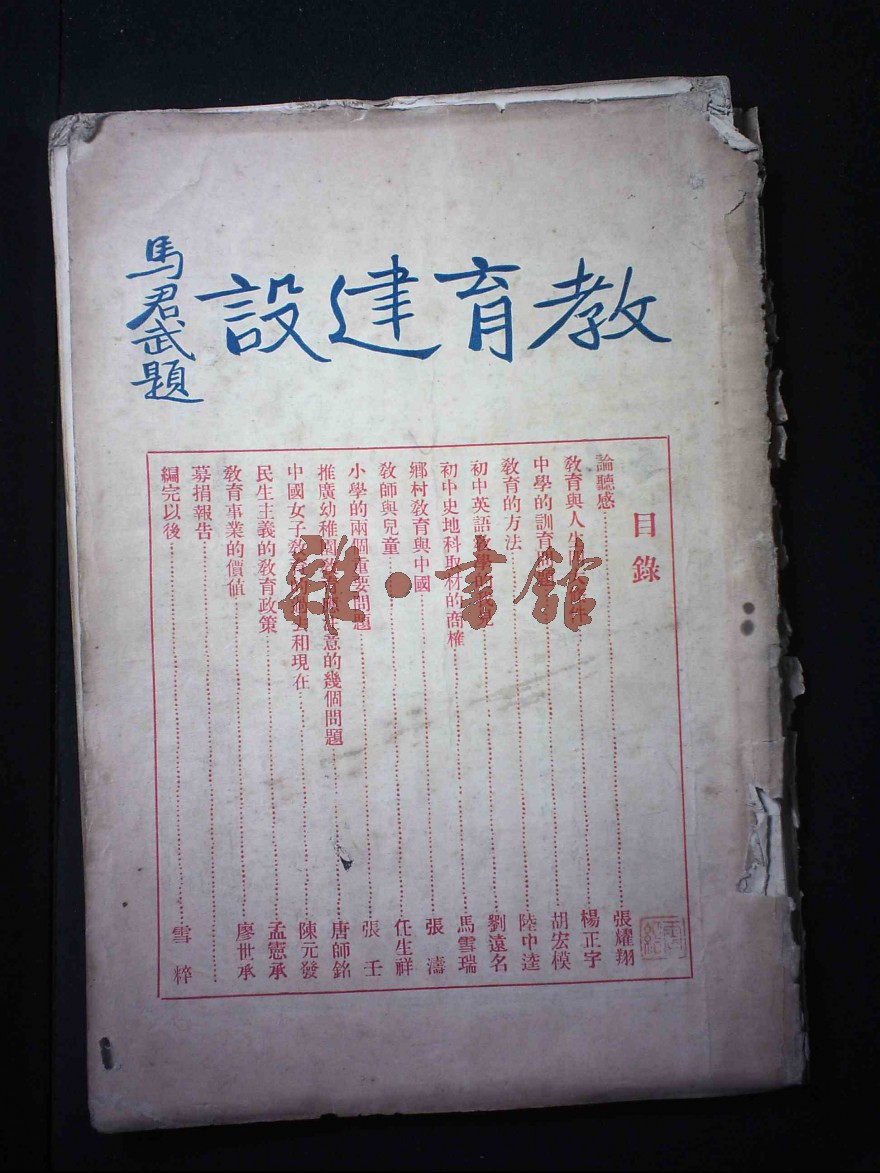 教育建設
馬君武題
目錄
論聽感 張耀翔
教育與人生 楊正宇
中學的訓育問題 胡宏模
教育的方法 陸中逵
初中英語教學的 劉遠名
初中史地科取材的商榷 馬雪瑞
鄉村教育與中國 張濤
教師與兒童 任生祥
小學的兩個重要問題 張壬
推廣幼稚園教育 意的幾個問題 唐師銘
中國女子教育的 和現在 陳元發
民生主義的教育政策 孟憲承
教育事業的價值 廖世承
募捐報告
編完以後 雪粹
雜·書館